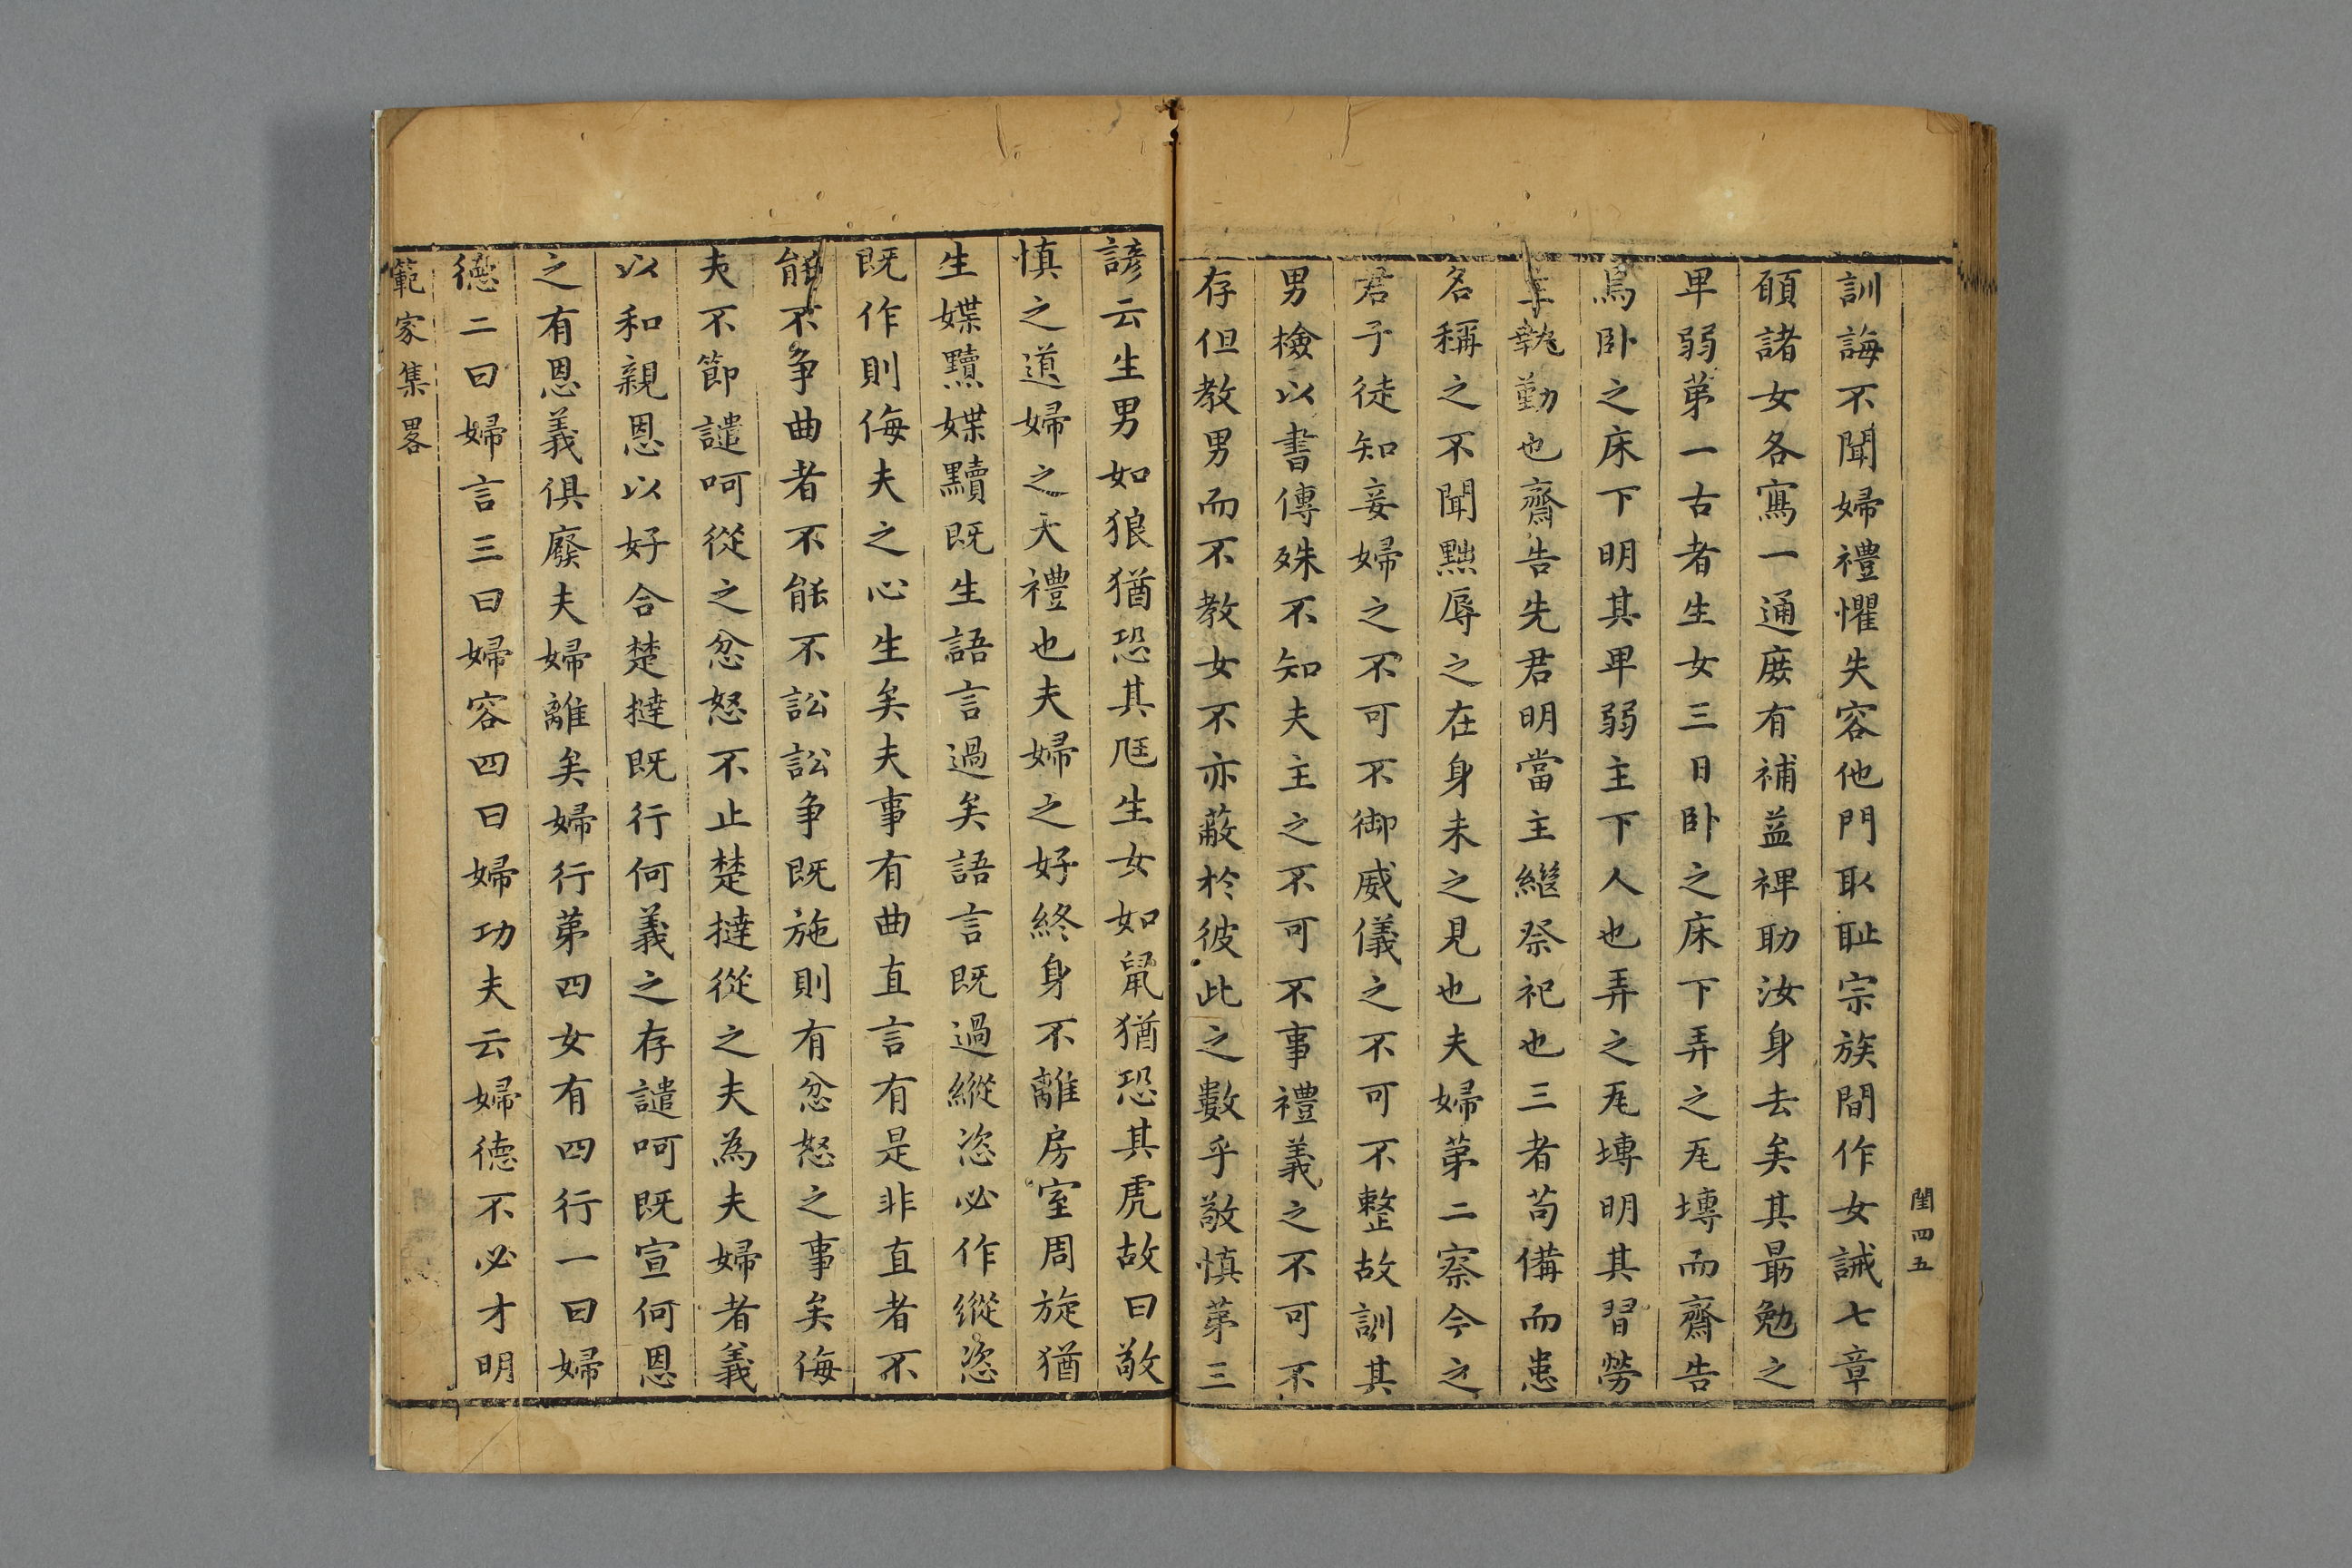 閨四五
訓誨不聞婦禮懼失容他門取恥宗族間作女誡七章
願諸女各寫一通庶有補益裨助汝身去矣其最勉之
卑弱第一古者生女三日臥之床下弄之瓦塼而齋告
焉臥之床下明其卑弱主下人也弄之瓦塼明其習勞
主執勤也齋告先君明當主繼祭祀也三者苟備而患
名稱之不聞黙辱之在身未之見也夫婦第二察今之
君子徒知妾婦之不可不御威儀之不可不整故訓其
男檢以書傳殊不知夫主之不可不事禮義之不可不
存但教男而不教女不亦蔽於彼此之數乎敬慎第三
諺云生男如狼猶恐其尫生女如鼠猶恐其虎故曰敬
慎之道婦之大禮也夫婦之好終身不離房室周旋猶
生媟黷媟黷既生語言過矣語言既過縱恣必作縱恣
既作則侮夫之心生矣夫事有曲直言有是非直者不
能不爭曲者不能不訟訟爭既施則有忿怒之事矣侮
夫不節譴呵從之忿怒不止楚撻從之夫為夫婦者義
以和親恩以好合楚撻既行何義之存譴呵既宣何恩
之有恩義俱廢夫婦離矣婦行第四女有四行一曰婦
德二曰婦言三曰婦容四曰婦功夫云婦德不必才明
範家集畧